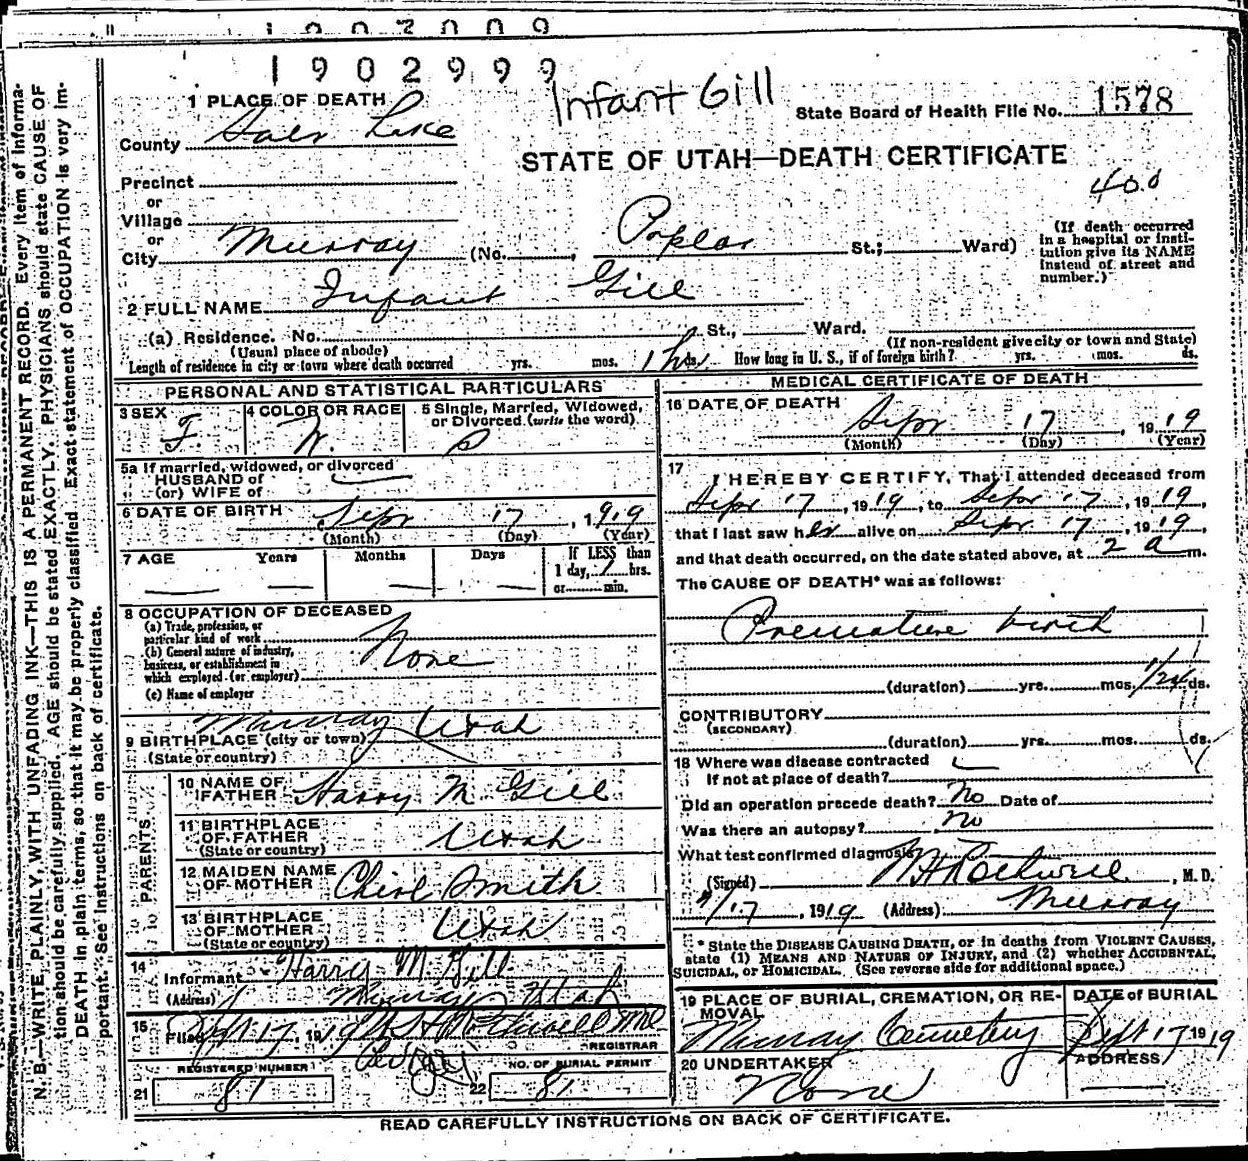 1902999
Infant Gill
State Board of Health File No. 1578
1 PLACE OF DEATH
County Salt Lake
STATE OF UTAH—DEATH CERTIFICATE
400
Precinct
or
Village
or
City Murray (No. , Poplar St.; Ward)
(If death occurred
in a hospital or insti-
tution give its NAME
instead of street and
number.)
2 FULL NAME Infant Gill
(a) Residence. No. St., Ward.
(Usual place of abode)
(If non-resident give city or town and State)
Length of residence in city or town where death occurred yrs. mos. 1 hr ds. How long in U. S., if of foreign birth? yrs. mos. ds.
PERSONAL AND STATISTICAL PARTICULARS
3 SEX F. 4 COLOR OR RACE W. 5 Single, Married, Widowed,
or Divorced (write the word) S
5a If married, widowed, or divorced
HUSBAND of
(or) WIFE of
6 DATE OF BIRTH Sept 17, 1919
(Month) (Day) (Year)
7 AGE Years Months Days If LESS than
1 day, 1 hrs.
or min.
8 OCCUPATION OF DECEASED
(a) Trade, profession, or
particular kind of work None
(b) General nature of industry,
business, or establishment in
which employed (or employer)
(c) Name of employer
Murray Utah
9 BIRTHPLACE (city or town)
(State or country)
PARENTS
10 NAME OF
FATHER Harry M Gill
11 BIRTHPLACE
OF FATHER
(State or country) Utah
12 MAIDEN NAME
OF MOTHER Smith
13 BIRTHPLACE
OF MOTHER
(State or country) Utah
14 Informant Harry M Gill
(Address) Murray Utah
15 Filed Sept 17, 1919
REGISTRAR
REGISTERED NUMBER
21 81
NO. OF BURIAL PERMIT
22 81
MEDICAL CERTIFICATE OF DEATH
16 DATE OF DEATH
Sept 17, 1919
(Month) (Day) (Year)
17 I HEREBY CERTIFY, That I attended deceased from
Sept 17, 1919, to Sept 17, 1919
that I last saw her alive on Sept 17, 1919,
and that death occurred, on the date stated above, at 2 a m.
The CAUSE OF DEATH* was as follows:
Premature birth
(duration) yrs. mos. 1/24 ds.
CONTRIBUTORY
(SECONDARY)
(duration) yrs. mos. ds.
18 Where was disease contracted
If not at place of death?
Did an operation precede death? No Date of
Was there an autopsy? No
What test confirmed diagnosis
(Signed) H Rothwell, M. D.
9/17, 1919 (Address) Murray
* State the DISEASE CAUSING DEATH, or in deaths from VIOLENT CAUSES,
state (1) MEANS AND NATURE OF INJURY, and (2) whether ACCIDENTAL,
SUICIDAL, or HOMICIDAL. (See reverse side for additional space.)
19 PLACE OF BURIAL, CREMATION, OR RE-
MOVAL
Murray Cemetery
DATE of BURIAL
Sept 17 1919
20 UNDERTAKER
None
ADDRESS
READ CAREFULLY INSTRUCTIONS ON BACK OF CERTIFICATE.
N. B.—WRITE PLAINLY, WITH UNFADING INK—THIS IS A PERMANENT RECORD. Every item of informa-
tion should be carefully supplied. AGE should be stated EXACTLY. PHYSICIANS should state CAUSE OF
DEATH in plain terms, so that it may be properly classified. Exact statement of OCCUPATION is very im-
portant. See instructions on back of certificate.